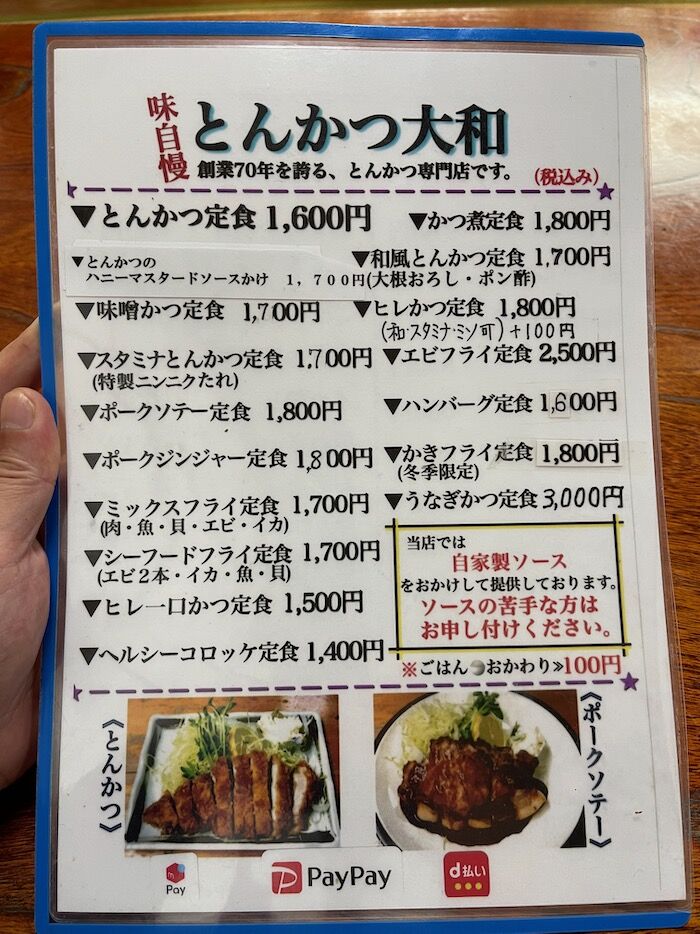 味自慢
とんかつ大和
創業70年を誇る、とんかつ専門店です。
(税込み)
▼とんかつ定食 1,600円
▼かつ煮定食 1,800円
▼とんかつの
ハニーマスタードソースかけ 1,700円
▼和風とんかつ定食 1,700円
(大根おろし・ポン酢)
▼味噌かつ定食 1,700円
▼ヒレかつ定食 1,800円
(和・スタミナ・ミソ可)+100円
▼スタミナとんかつ定食 1,700円
(特製ニンニクたれ)
▼エビフライ定食 2,500円
▼ポークソテー定食 1,800円
▼ハンバーグ定食 1,600円
▼ポークジンジャー定食 1,800円
▼かきフライ定食 1,800円
(冬季限定)
▼ミックスフライ定食 1,700円
(肉・魚・貝・エビ・イカ)
▼うなぎかつ定食 3,000円
▼シーフードフライ定食 1,700円
(エビ2本・イカ・魚・貝)
▼ヒレ一口かつ定食 1,500円
▼ヘルシーコロッケ定食 1,400円
当店では
自家製ソース
をおかけして提供しております。
ソースの苦手な方は
お申し付けください。
※ごはんおかわり≫100円
《とんかつ》
《ポークソテー》
Pay
PayPay
d払い